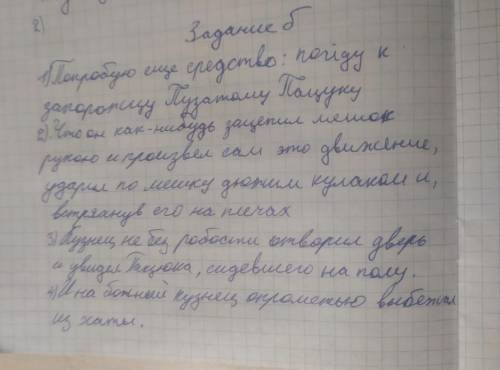 2)
Задание б
1) Попробую еще средство: пойду к
запорожцу Пузатому Пацуку
2) Что он как-нибудь зацепил мешок
рукою и произвел сам это движение,
ударил по мешку дюжим кулаком и,
встряхнув его на плечах
3) Кузнец не без робости отворил дверь
и увидел Пацюка, сидевшего на полу.
4) И на божный кузнец опрометью выбежал
из хаты.